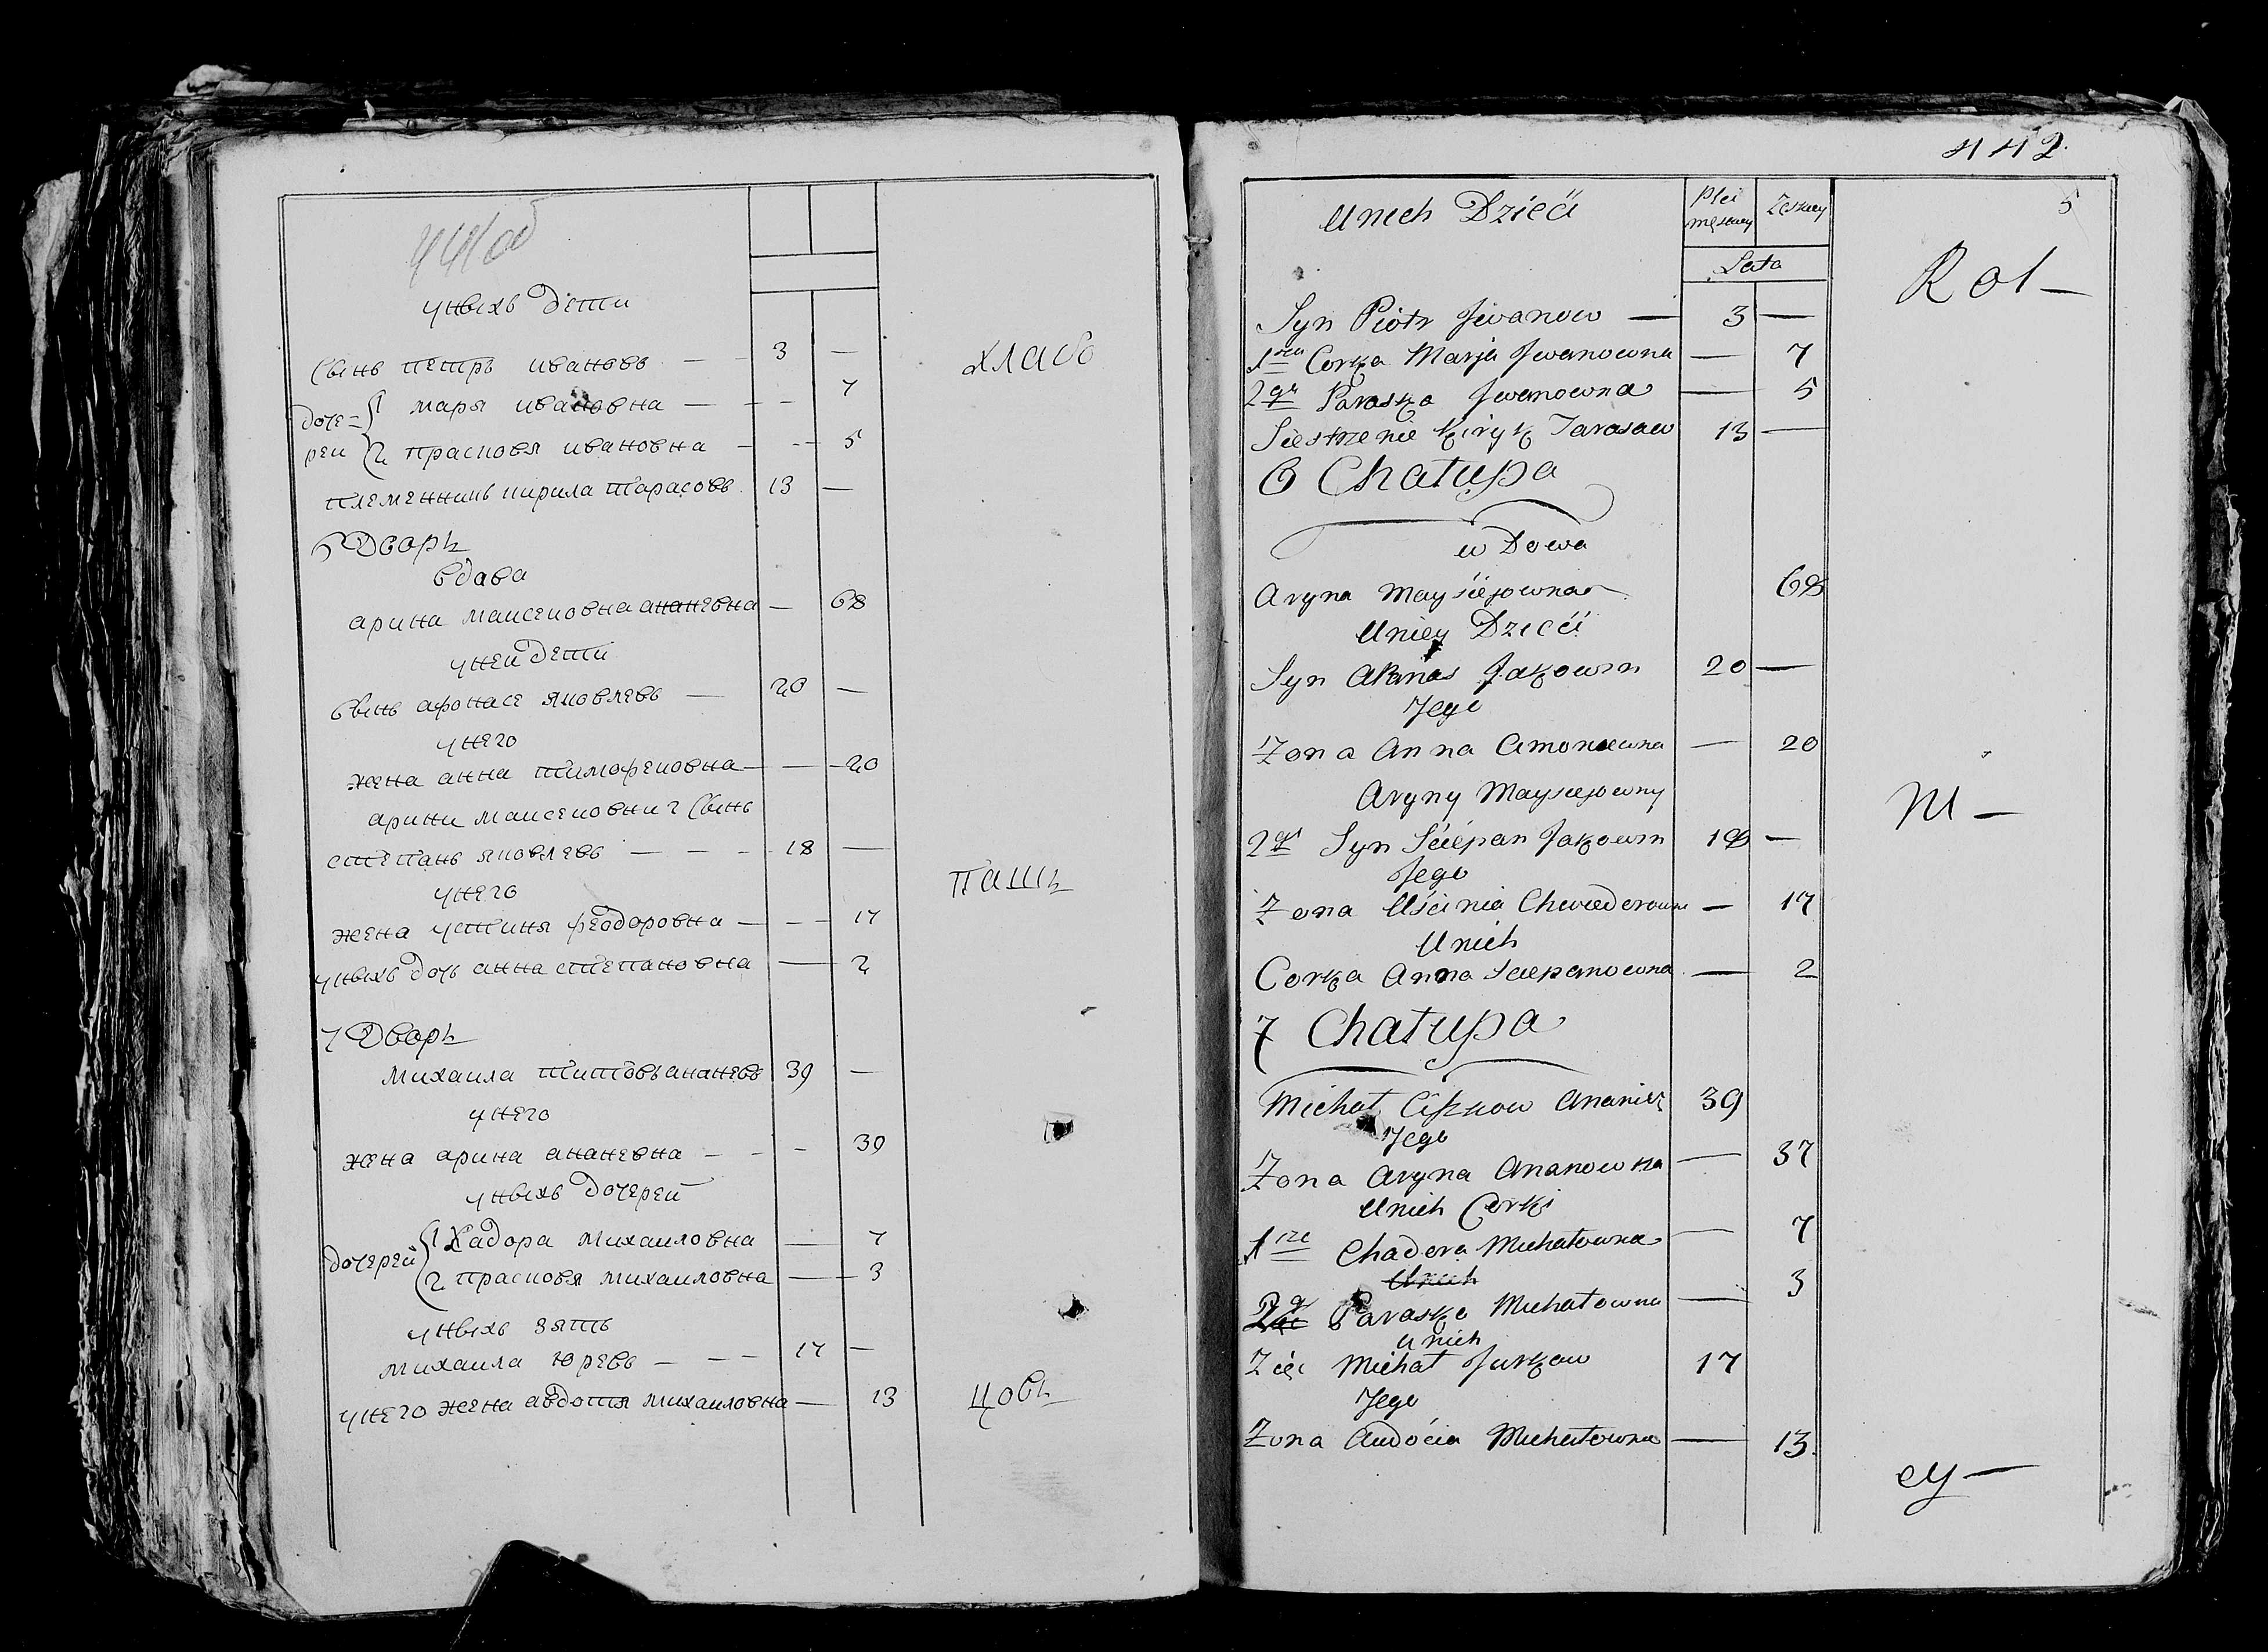 441об
унвихъ дети
Свинъ петръ ивановъ — 3 —
1 маря ивановна — 7
доче=
рей 2 прасковя ивановна — 5
племенникъ кирила тарасовъ 13 —
6 Дворъ
вдава
арина маисеиовна ананевна — 68
уней дети
Свинъ афонасе яковлевъ — 20 —
унего
жена анна тимофеиовна — 20
арини маисеиовни 2 Свинъ
степанъ яковлевъ — 18 —
унего
жена устиня феодоровна — 17
унвихъ дочь анна степановна — 2
7 Дворъ
михаила титовъ ананевъ 39 —
унего
жена арина ананевна — 39
унвихъ дочерей
1 Хадора михаиловна — 7
дочерей
2 прасковя михаиловна — 3
унвихъ зять
михаила юревъ — 17 —
унего жена авдотя михаиловна — 13
хлабо
пашъ
цовъ
442
5
Unich Dzieci
Płci męskiey Żęskiey
Lata
Syn Piotr Jwanow — 3 —
1sza Corka Marja Jwanowna — 7
2ga Paraska Jwanowna — 5
Siestrzenie Kiryk Tarasaw 13 —
6 Chałupa
wDowa
Aryna Maysiejowna 68
Uniey Dzieci
Syn Afanas Jakowin 20 —
Jego
Zona Anna Amonowna — 20
Aryny Maysiejowny
2gi Syn Sciepan Jakowin 18 —
Jego
Zona Uścinia Chwiederowna — 17
Unich
Corka Anna Sciepanowna — 2
7 Chałupa
Michał Ciszkow Ananiez 39
Jego
Zona Aryna Ananowna — 37
Unich Corki
1sze Chadora Michałowna — 7
Unich
2ga Paraska Michałowna — 3
Unich
Zięć Michał Jurkow 17
Jego
Zona Audocia Michałowna — 13
Rol —
ni —
cy —